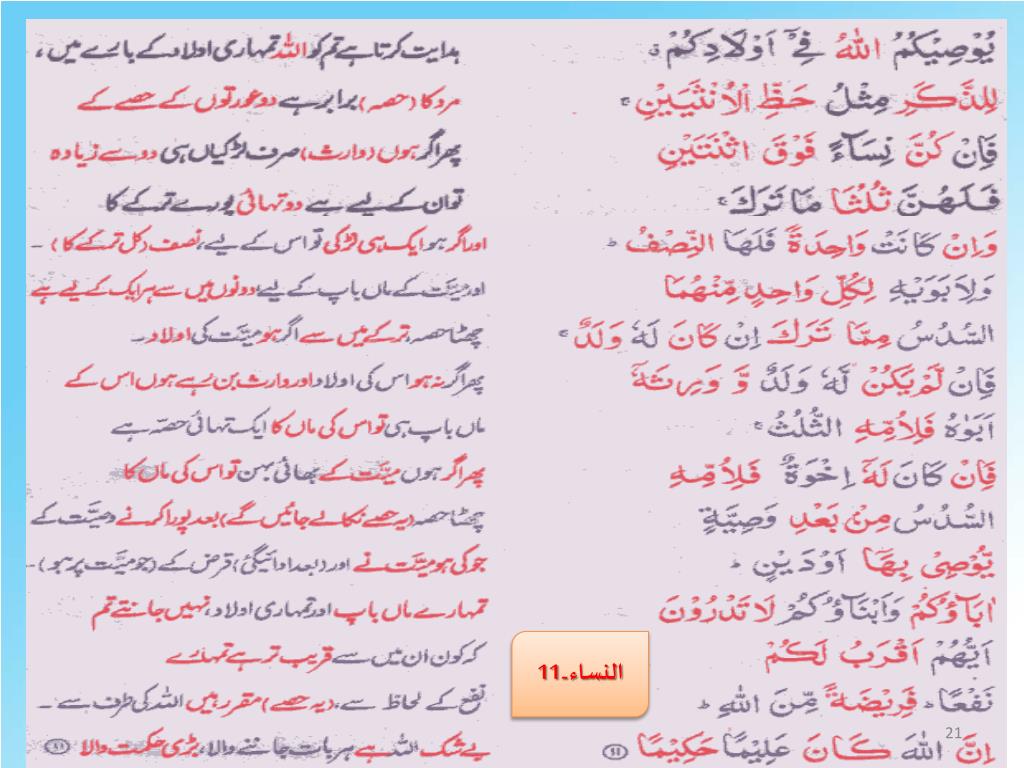 يُوْصِيْكُمُ اللّٰهُ فِيْٓ اَوْلَادِكُمْ ۤ ہدایت کرتا ہے تم کو اللہ تمہاری اولاد کے بارے میں ،
لِلذَّكَرِ مِثْلُ حَظِّ الْاُنْثَيَيْنِ ۚ مرد کا (حصہ) برابر ہے دو عورتوں کے حصے کے
فَاِنْ كُنَّ نِسَآءً فَوْقَ اثْنَتَيْنِ پھر اگر ہوں (وارث) صرف لڑکیاں ہی دو سے زیادہ
فَلَهُنَّ ثُلُثَا مَا تَرَكَ ۚ تو ان کے لیے ہے دو تہائی پورے ترکے کا
وَاِنْ كَانَتْ وَاحِدَةً فَلَهَا النِّصْفُ ؕ اور اگر ہو ایک ہی لڑکی تو اس کے لیے، نصف (کل ترکے کا) ۔
وَلِاَبَوَيْهِ لِكُلِّ وَاحِدٍ مِّنْهُمَا اور میّت کے ماں باپ کے لیے دونوں میں سے ہر ایک کے لیے ہے
السُّدُسُ مِمَّا تَرَكَ اِنْ كَانَ لَهٗ وَلَدٌ ۚ چھٹا حصہ، ترکے میں سے اگر ہو میّت کی اولاد۔
فَاِنْ لَّمْ يَكُنْ لَّهٗ وَلَدٌ وَّ وَرِثَهٗٓ پھر اگر نہ ہو اس کی اولاد اور وارث بن رہے ہوں اس کے
اَبَوٰهُ فَلِاُمِّهِ الثُّلُثُ ۚ ماں باپ ہی تو اس کی ماں کا ایک تہائی حصّہ ہے
فَاِنْ كَانَ لَهٗٓ اِخْوَةٌ فَلِاُمِّهِ پھر اگر ہوں میّت کے بھائی بہن تو اس کی ماں کا
السُّدُسُ مِنْۢ بَعْدِ وَصِيَّةٍ چھٹا حصہ (یہ حصے نکالے جائیں گے) بعد پورا کرنے وصیّت کے
يُّوْصِيْ بِهَآ اَوْ دَيْنٍ ؕ جو کی ہو میّت نے اور (بعد ادائیگی) قرض کے (جو میّت پر ہو) ۔
اٰبَآؤُكُمْ وَاَبْنَآؤُكُمْ لَا تَدْرُوْنَ تمہارے ماں باپ اور تمہاری اولاد، نہیں جانتے تم
اَيُّهُمْ اَقْرَبُ لَكُمْ کہ کون ان میں سے قریب تر ہے تمہارے
نَفْعًا ؕ فَرِيْضَةً مِّنَ اللّٰهِ ؕ نفع کے لحاظ سے، (یہ حصے) مقرر ہیں اللہ کی طرف سے ۔
اِنَّ اللّٰهَ كَانَ عَلِيْمًا حَكِيْمًا ⑪ بے شک اللہ ہے ہر بات جاننے والا، بڑی حکمت والا (۱۱)
النساء۔11
21